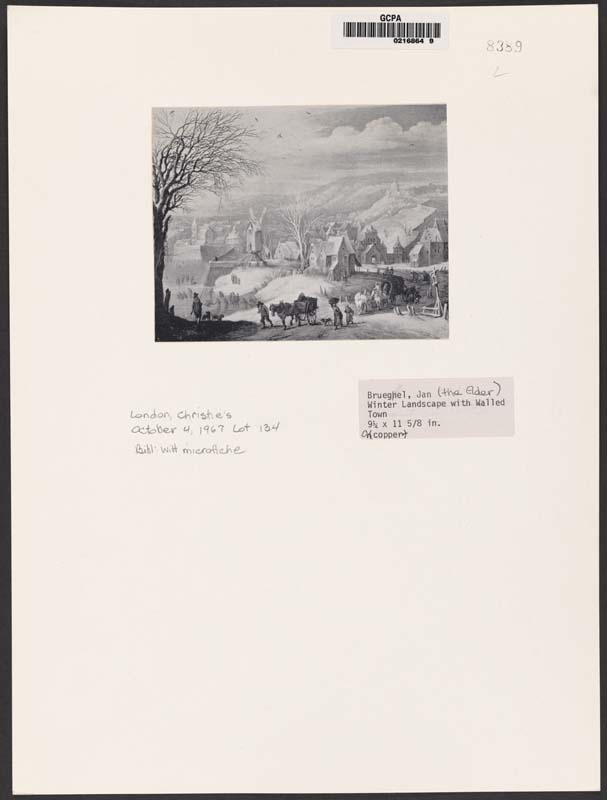 GCPA
0216864 9
8389
L
London, Christie's
October 4, 1967 Lot 134
Bibl: Witt microfiche
Brueghel, Jan (the Elder)
Winter Landscape with Walled
Town
9¼ x 11 5/8 in.
(copper)